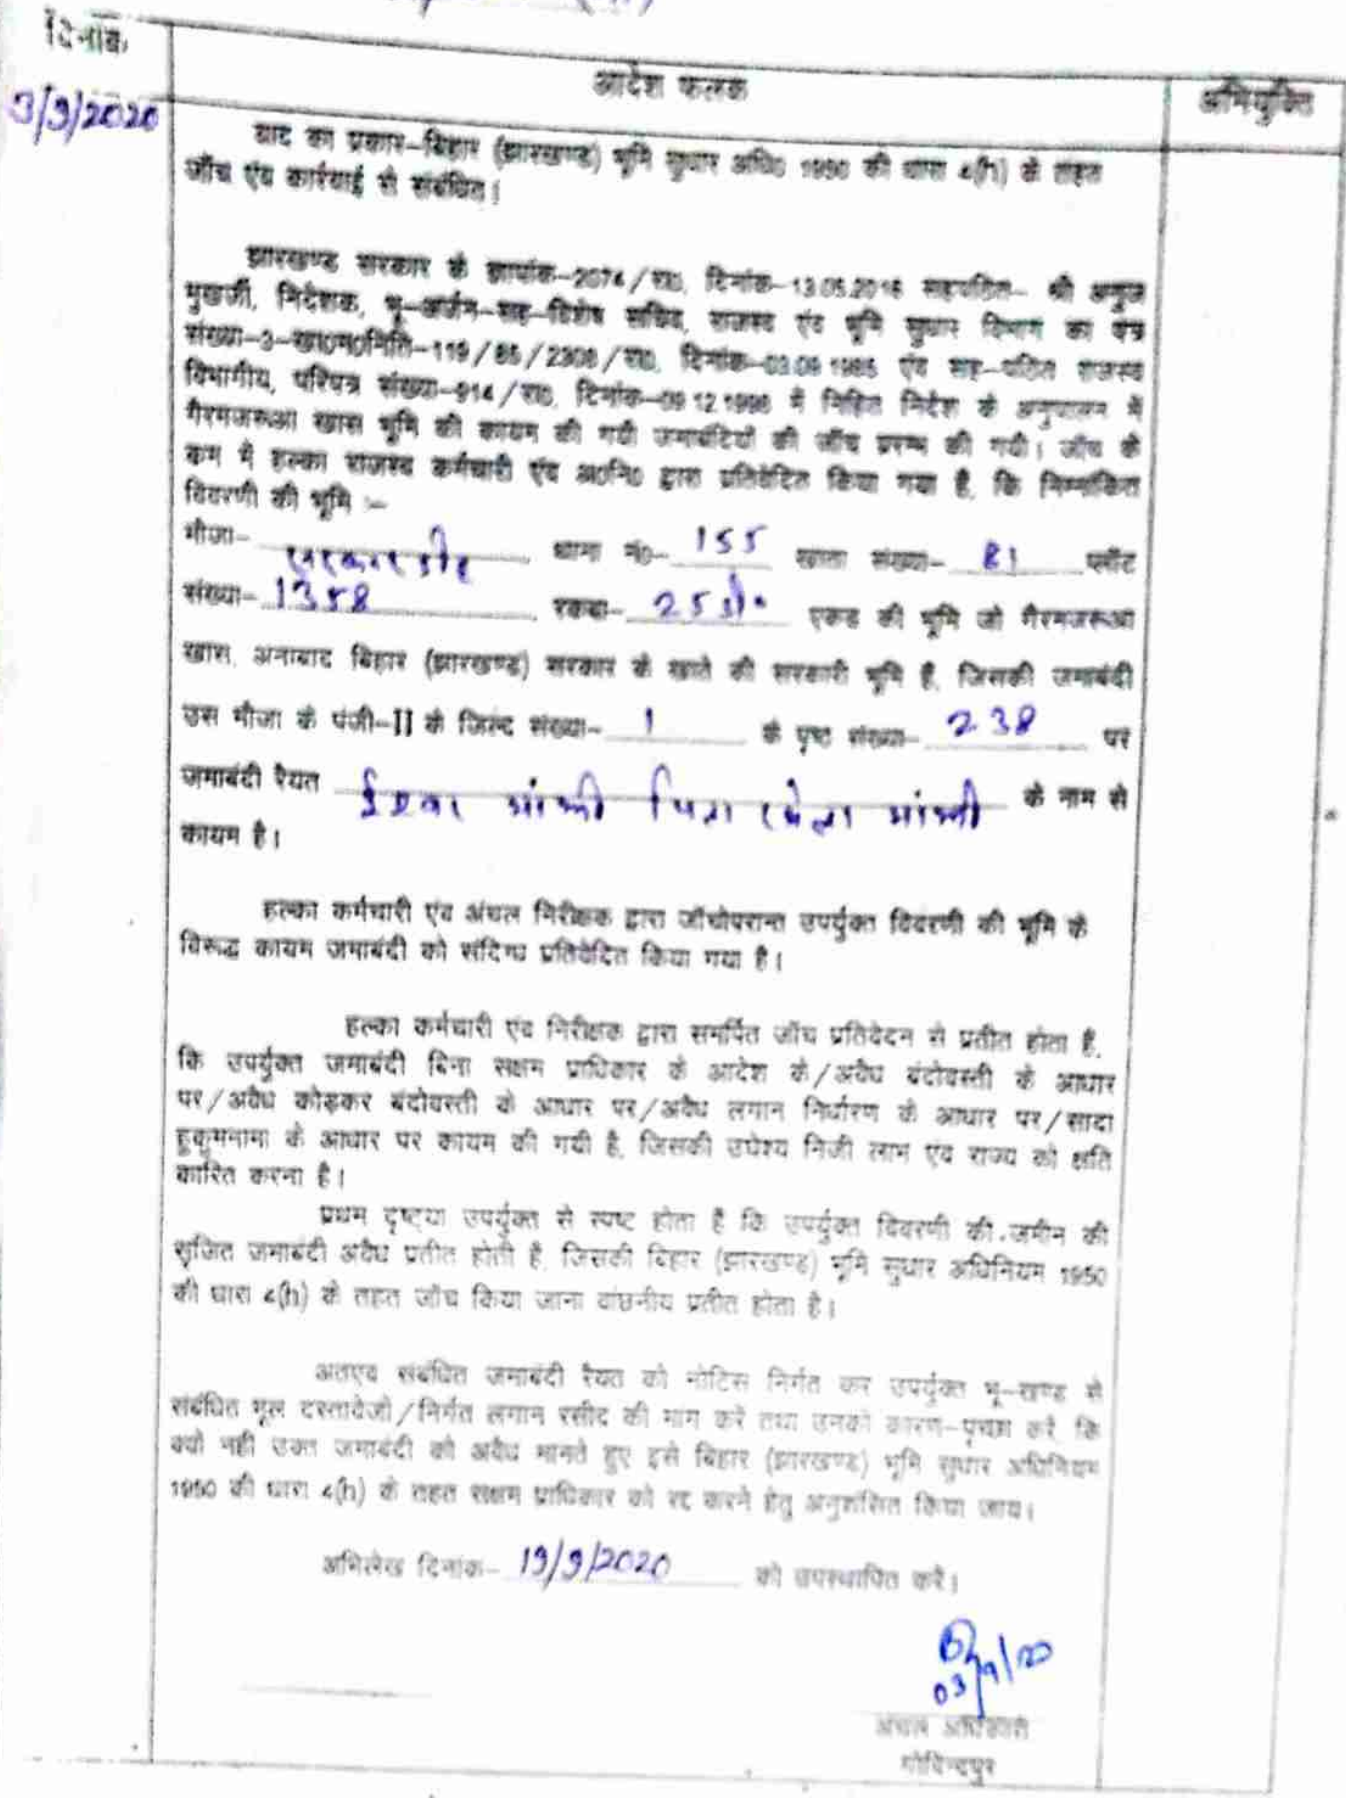 दिनांक
आदेश फलक
अभियुक्ति
3/9/2020
वाद का प्रकार-बिहार (झारखण्ड) भूमि सुधार अधि0 1950 की धारा 4(h) के तहत
जाँच एंव कार्रवाई से संबंधित।
झारखण्ड सरकार के ज्ञापांक-2074/रा0, दिनांक-13.05.2016 सहपठित- श्री
मुखर्जी, निदेशक, भू-अर्जन-सह-विशेष सचिव, राजस्व एंव भूमि सुधार विभाग का पत्र
संख्या-3-खा0म0निति-119/85/2308/रा0, दिनांक-03.09.1985 एंव सह-पठित राजस्व
विभागीय, परिपत्र संख्या-914/रा0, दिनांक-09.12.1998 में निहित निदेश के अनुपालन में
गैरमजरूआ खास भूमि की कायम की गयी जमाबंदियों की जाँच प्ररम्भ की गयी। जाँच के
कम में हल्का राजस्व कर्मचारी एंव अ0नि0 द्वारा प्रतिवेदित किया गया है, कि निम्नांकित
विवरणी की भूमि :-
मौजा- थाना नं0- 155 खाता संख्या- 81 प्लॉट
संख्या- 1358 रकबा- 25 डी० एकड की भूमि जो गैरमजरूआ
खास, अनाबाद बिहार (झारखण्ड) सरकार के खाते की सरकारी भूमि हैं, जिसकी जमाबंदी
उस मौजा के पंजी-II के जिल्द संख्या- 1 के पृष्ट संख्या- 238 पर
जमाबंदी रैयत ईश्वर मांझी पिता मांझी के नाम से
कायम है।
हल्का कर्मचारी एंव अंचल निरीक्षक द्वारा जाँचोपरान्त उपर्युक्त विवरणी की भूमि के
विरूद्ध कायम जमाबंदी को संदिग्ध प्रतिवेदित किया गया है।
हल्का कर्मचारी एंव निरीक्षक द्वारा समर्पित जाँच प्रतिवेदन से प्रतीत होता है,
कि उपर्युक्त जमाबंदी बिना सक्षम प्राधिकार के आदेश के/अवैध बंदोवस्ती के आधार
पर/अवैध कोड़कर बंदोवस्ती के आधार पर/अवैध लगान निर्धारण के आधार पर/सादा
हुकुमनामा के आधार पर कायम की गयी है, जिसकी उदेश्य निजी लाभ एंव राज्य को क्षति
कारित करना है।
प्रथम दृष्टया उपर्युक्त से स्पष्ट होता है कि उपर्युक्त विवरणी की जमीन की
सृजित जमाबंदी अवैध प्रतीत होती है, जिसकी बिहार (झारखण्ड) भूमि सुधार अधिनियम 1950
की धारा 4(h) के तहत जाँच किया जाना वांछनीय प्रतीत होता है।
अतएव संबंधित जमाबंदी रैयत को नोटिस निर्गत कर उपर्युक्त भू-खण्ड से
संबंधित मूल दस्तावेजो/निर्गत लगान रसीद की माग करें तथा उनको कारण-पृच्छा करें, कि
क्यो नही उक्त जमाबंदी को अवैध मानते हुए इसे बिहार (झारखण्ड) भूमि सुधार अधिनियम
1950 की धारा 4(h) के तहत सक्षम प्राधिकार को रद्द करने हेतु अनुशंसित किया जाय।
अभिलेख दिनांक- 19/9/2020 को उपस्थापित करें।
03/9/20
अंचल अधिकारी
गोविन्दपुर